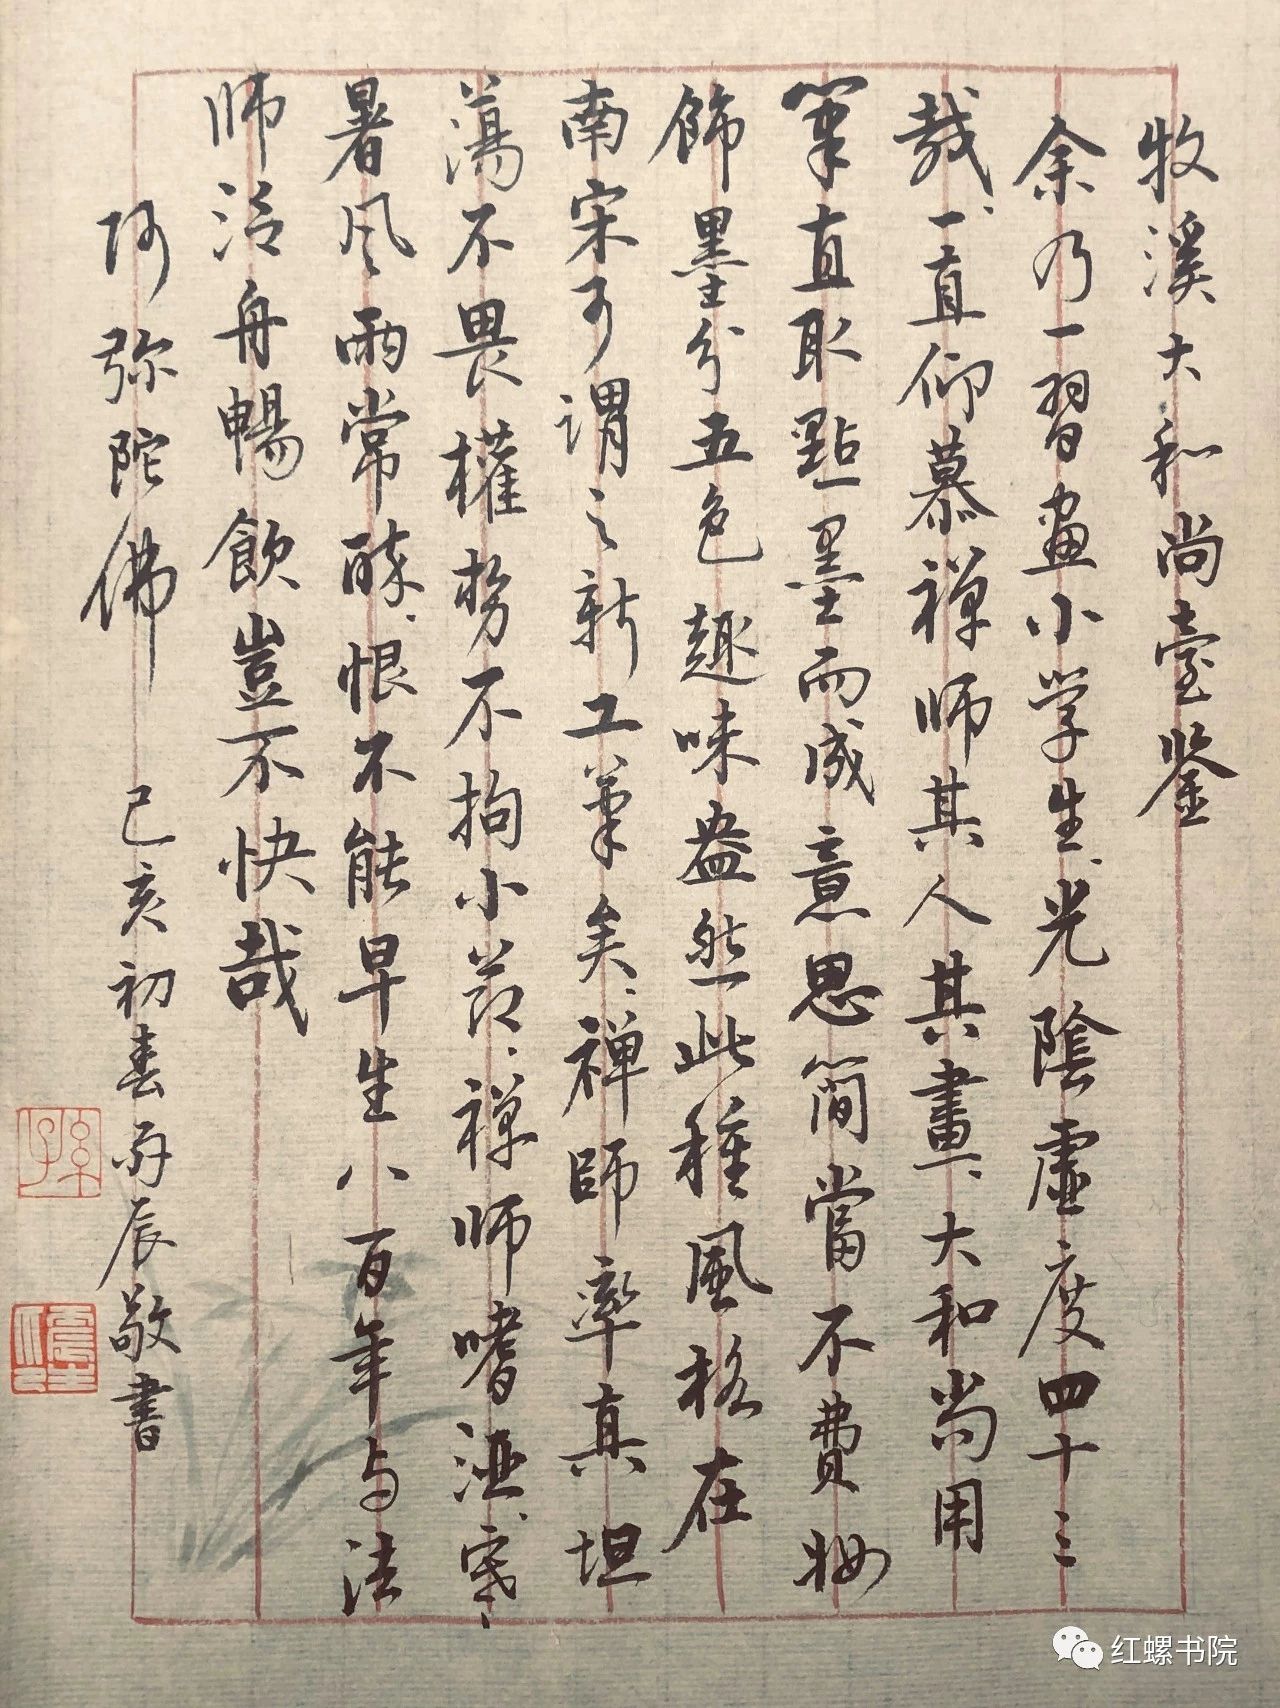 牧溪大和尚臺鉴
余乃一習畫小学生、光陰虛度四十三
哉、一直仰慕禅师其人其畫、大和尚用
筆直取點墨而成意思簡當不费妆
飾墨分五色趣味盎然此種風格在
南宋可谓之新工筆矣、禅師率真坦
蕩不畏權势不拘小节、禅师嗜酒、寒
暑风雨常醉、恨不能早生八百年与法
师泛舟暢飲豈不快哉
阿弥陀佛 己亥初春丙辰敬書
红螺书院